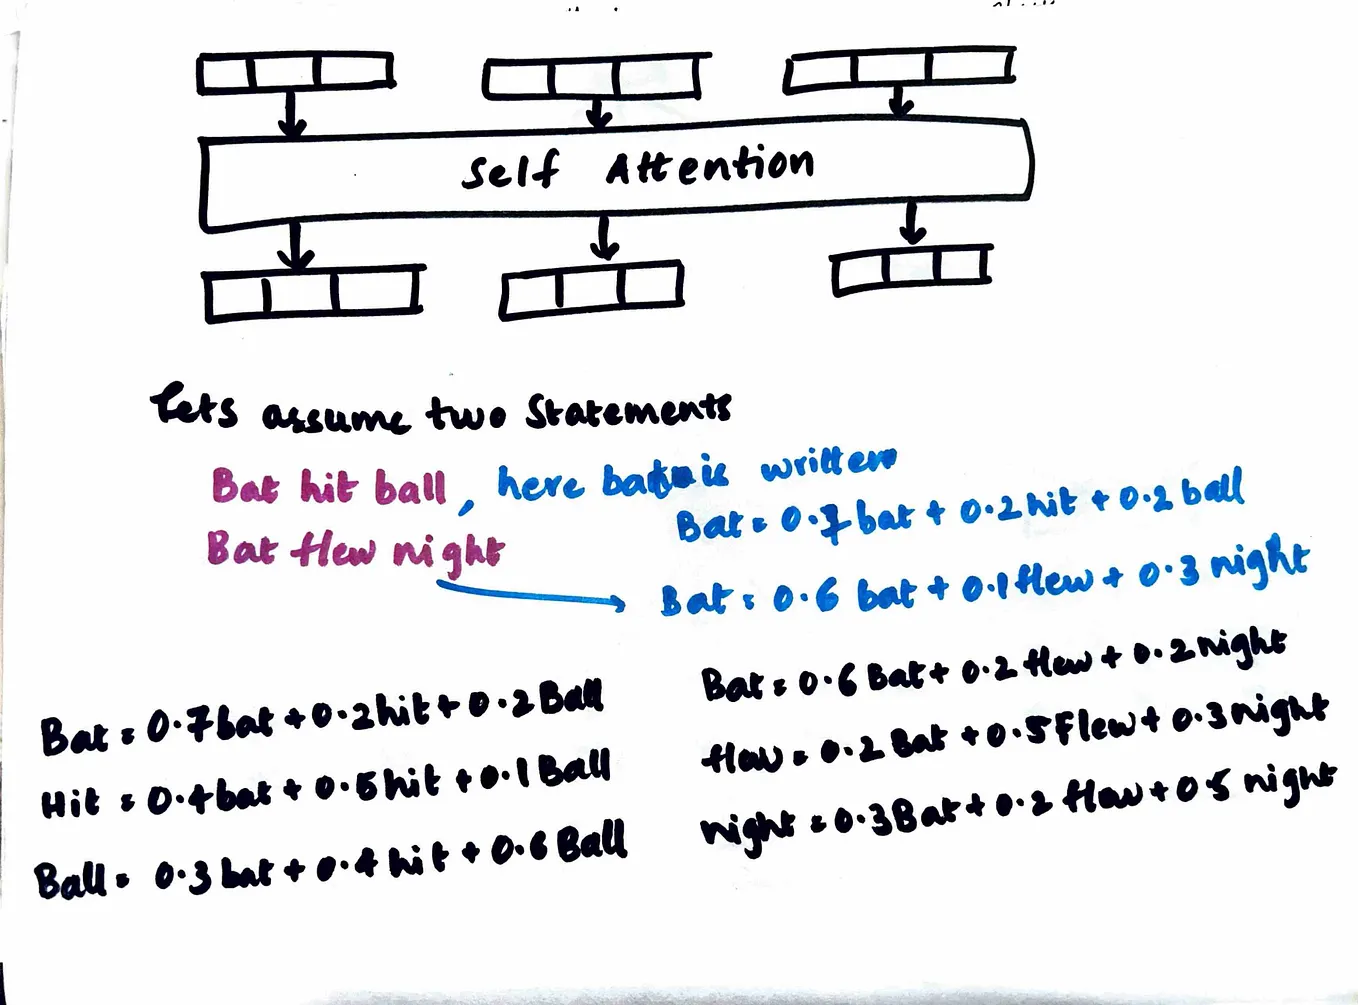 Self Attention
Lets assume two Statements
Bat hit ball, here is written
Bat = 0.7 bat + 0.2 hit + 0.2 ball
Bat flew night
Bat = 0.6 bat + 0.1 flew + 0.3 night
Bat = 0.7 bat + 0.2 hit + 0.2 Ball
Hit = 0.4 bat + 0.5 hit + 0.1 Ball
Ball = 0.3 bat + 0.4 hit + 0.6 Ball
Bat = 0.6 Bat + 0.2 flew + 0.2 night
flew = 0.2 Bat + 0.5 Flew + 0.3 night
night = 0.3 Bat + 0.2 flew + 0.5 night